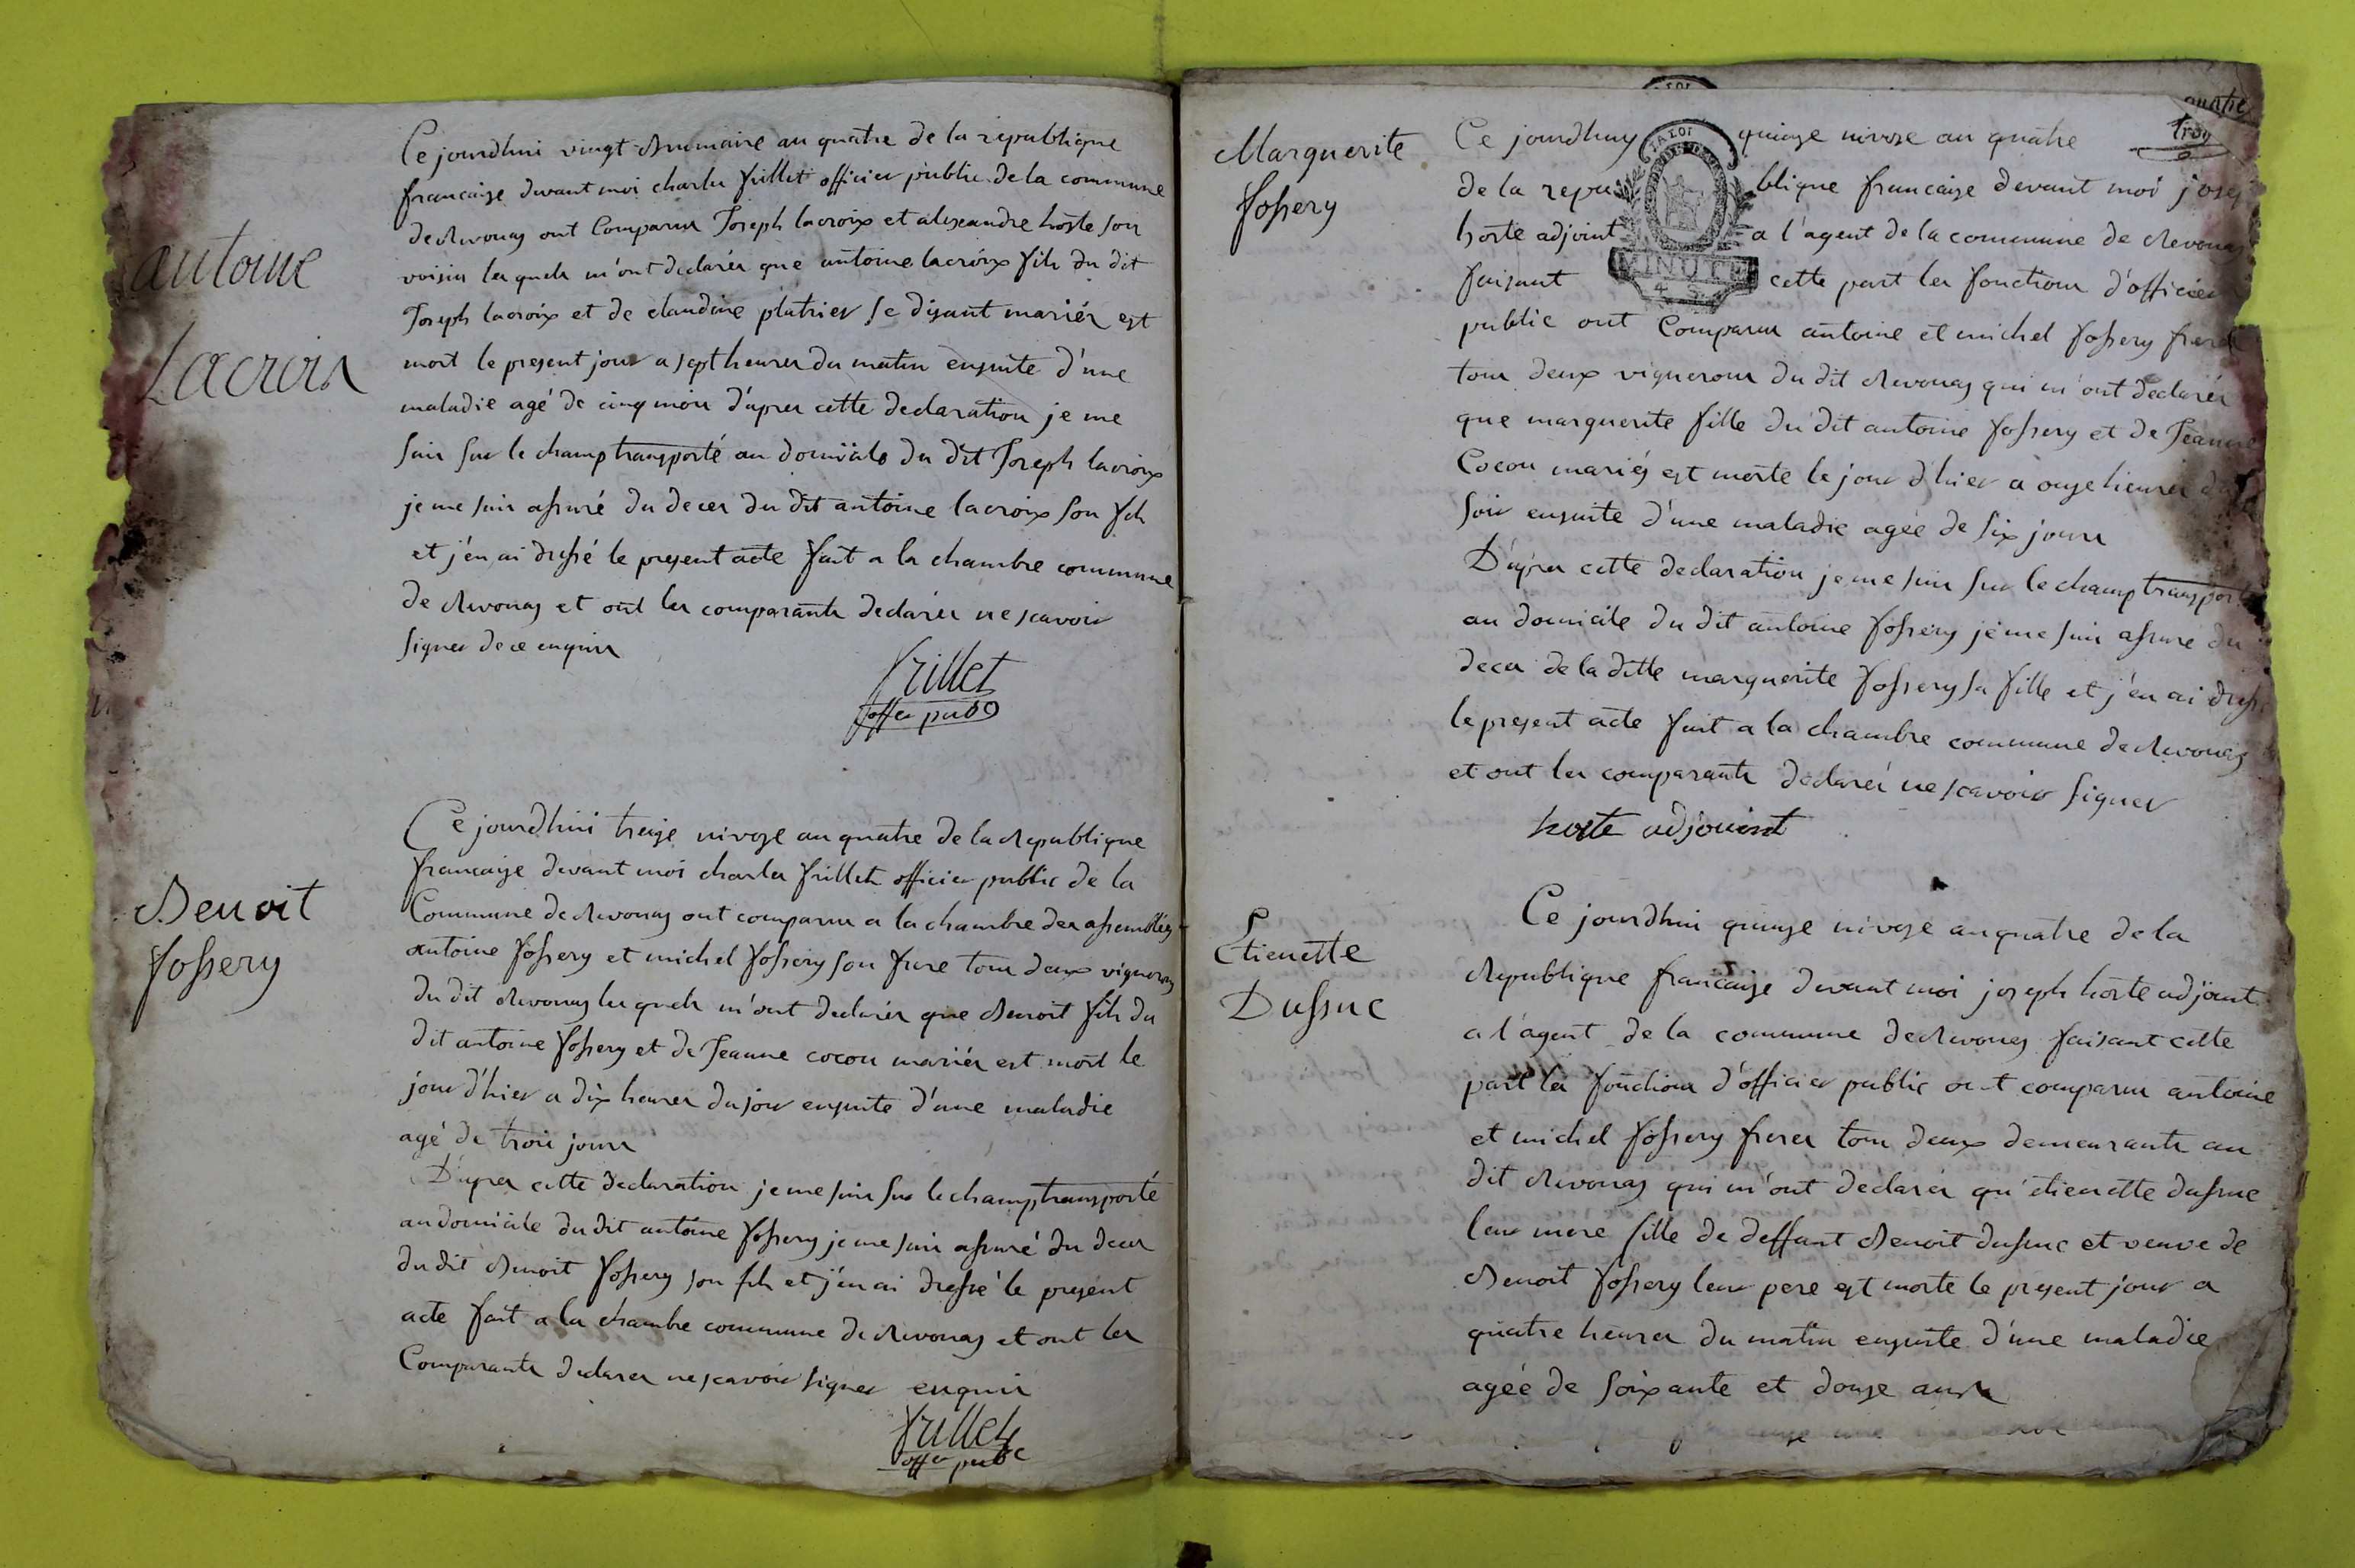 antoine
Lacroix
Ce jourdhui vingt brumaire an quatre de la republique
francaise devant moi charles frillet officier public de la commune
de Revonas ont Comparus Joseph lacroix et alexandre hoste son
voisin lesquels m'ont declarés que antoine lacroix fils du dit
Joseph lacroix et de claudine platrier se disant mariés est
mort le present jour a sept heures du matin ensuite d'une
maladie agé de cinq mois d'apres cette declaration je me
suis sur le champ transporté au domicile du dit Joseph lacroix
je me suis assuré du deces du dit antoine lacroix son fils
et j'en ai dressé le present acte fait a la chambre commune
de Revonas et ont les comparants declarés ne scavoir
signer de ce enquis
frillet
offer pubc
Benoit
fossery
Ce jourdhui treize nivose an quatre de la Republique
francaise devant moi charles frillet officier public de la
Commune de Revonas ont comparus a la chambre des assemblées
antoine fossery et michel fossery son frere tous deux vignerons
du dit Revonas lesquels m'ont declarés que Benoit fils du
dit antoine fossery et de Jeanne cocon mariés est mort le
jour d'hier a dix heures du soir ensuite d'une maladie
agé de trois jours
D'apres cette declaration je me suis sur le champ transporté
au domicile du dit antoine fossery je me suis assuré du deces
du dit Benoit fossery son fils et j'en ai dressé le present
acte fait a la chambre commune de Revonas et ont les
Comparants declares ne scavoir signer enquis
frillet
offer pubc
quatre
troy
Marguerite
fossery
Ce jourdhuy quinze nivose an quatre
de la republique francaise devant moi josep
hoste adjoint a l'agent de la commune de Revonas
faisant cette part les fonctions d'officier
public ont Comparus antoine et michel fossery freres
tous deux vignerons du dit Revonas qui m'ont declarés
que marguerite fille du dit antoine fossery et de Jeanne
Cocon mariés est morte le jour d'hier a onze heures du
soir ensuite d'une maladie agée de six jours
D'apres cette declaration je me suis sur le champ transporté
au domicile du dit antoine fossery je me suis assuré du
deces de la ditte marguerite fossery sa fille et j'en ai dressé
le present acte fait a la chambre commune de Revonas
et ont les comparants declarés ne scavoir signer
hoste adjouint
LA LOI
MINUTE
Etienette
Dussuc
Ce jourdhui quinze nivose an quatre de la
Republique francaise devant moi joseph hoste adjoint
a l'agent de la commune de Revonas faisant cette
part les fonctions d'officier public ont comparus antoine
et michel fossery freres tous deux demeurants au
dit Revonas qui m'ont declarés qu'etienette dussuc
leur mere fille de deffunt Benoit dussuc et veuve de
Benoit fossery leur pere est morte le present jour a
quatre heures du matin ensuite d'une maladie
agée de soixante et douze ans